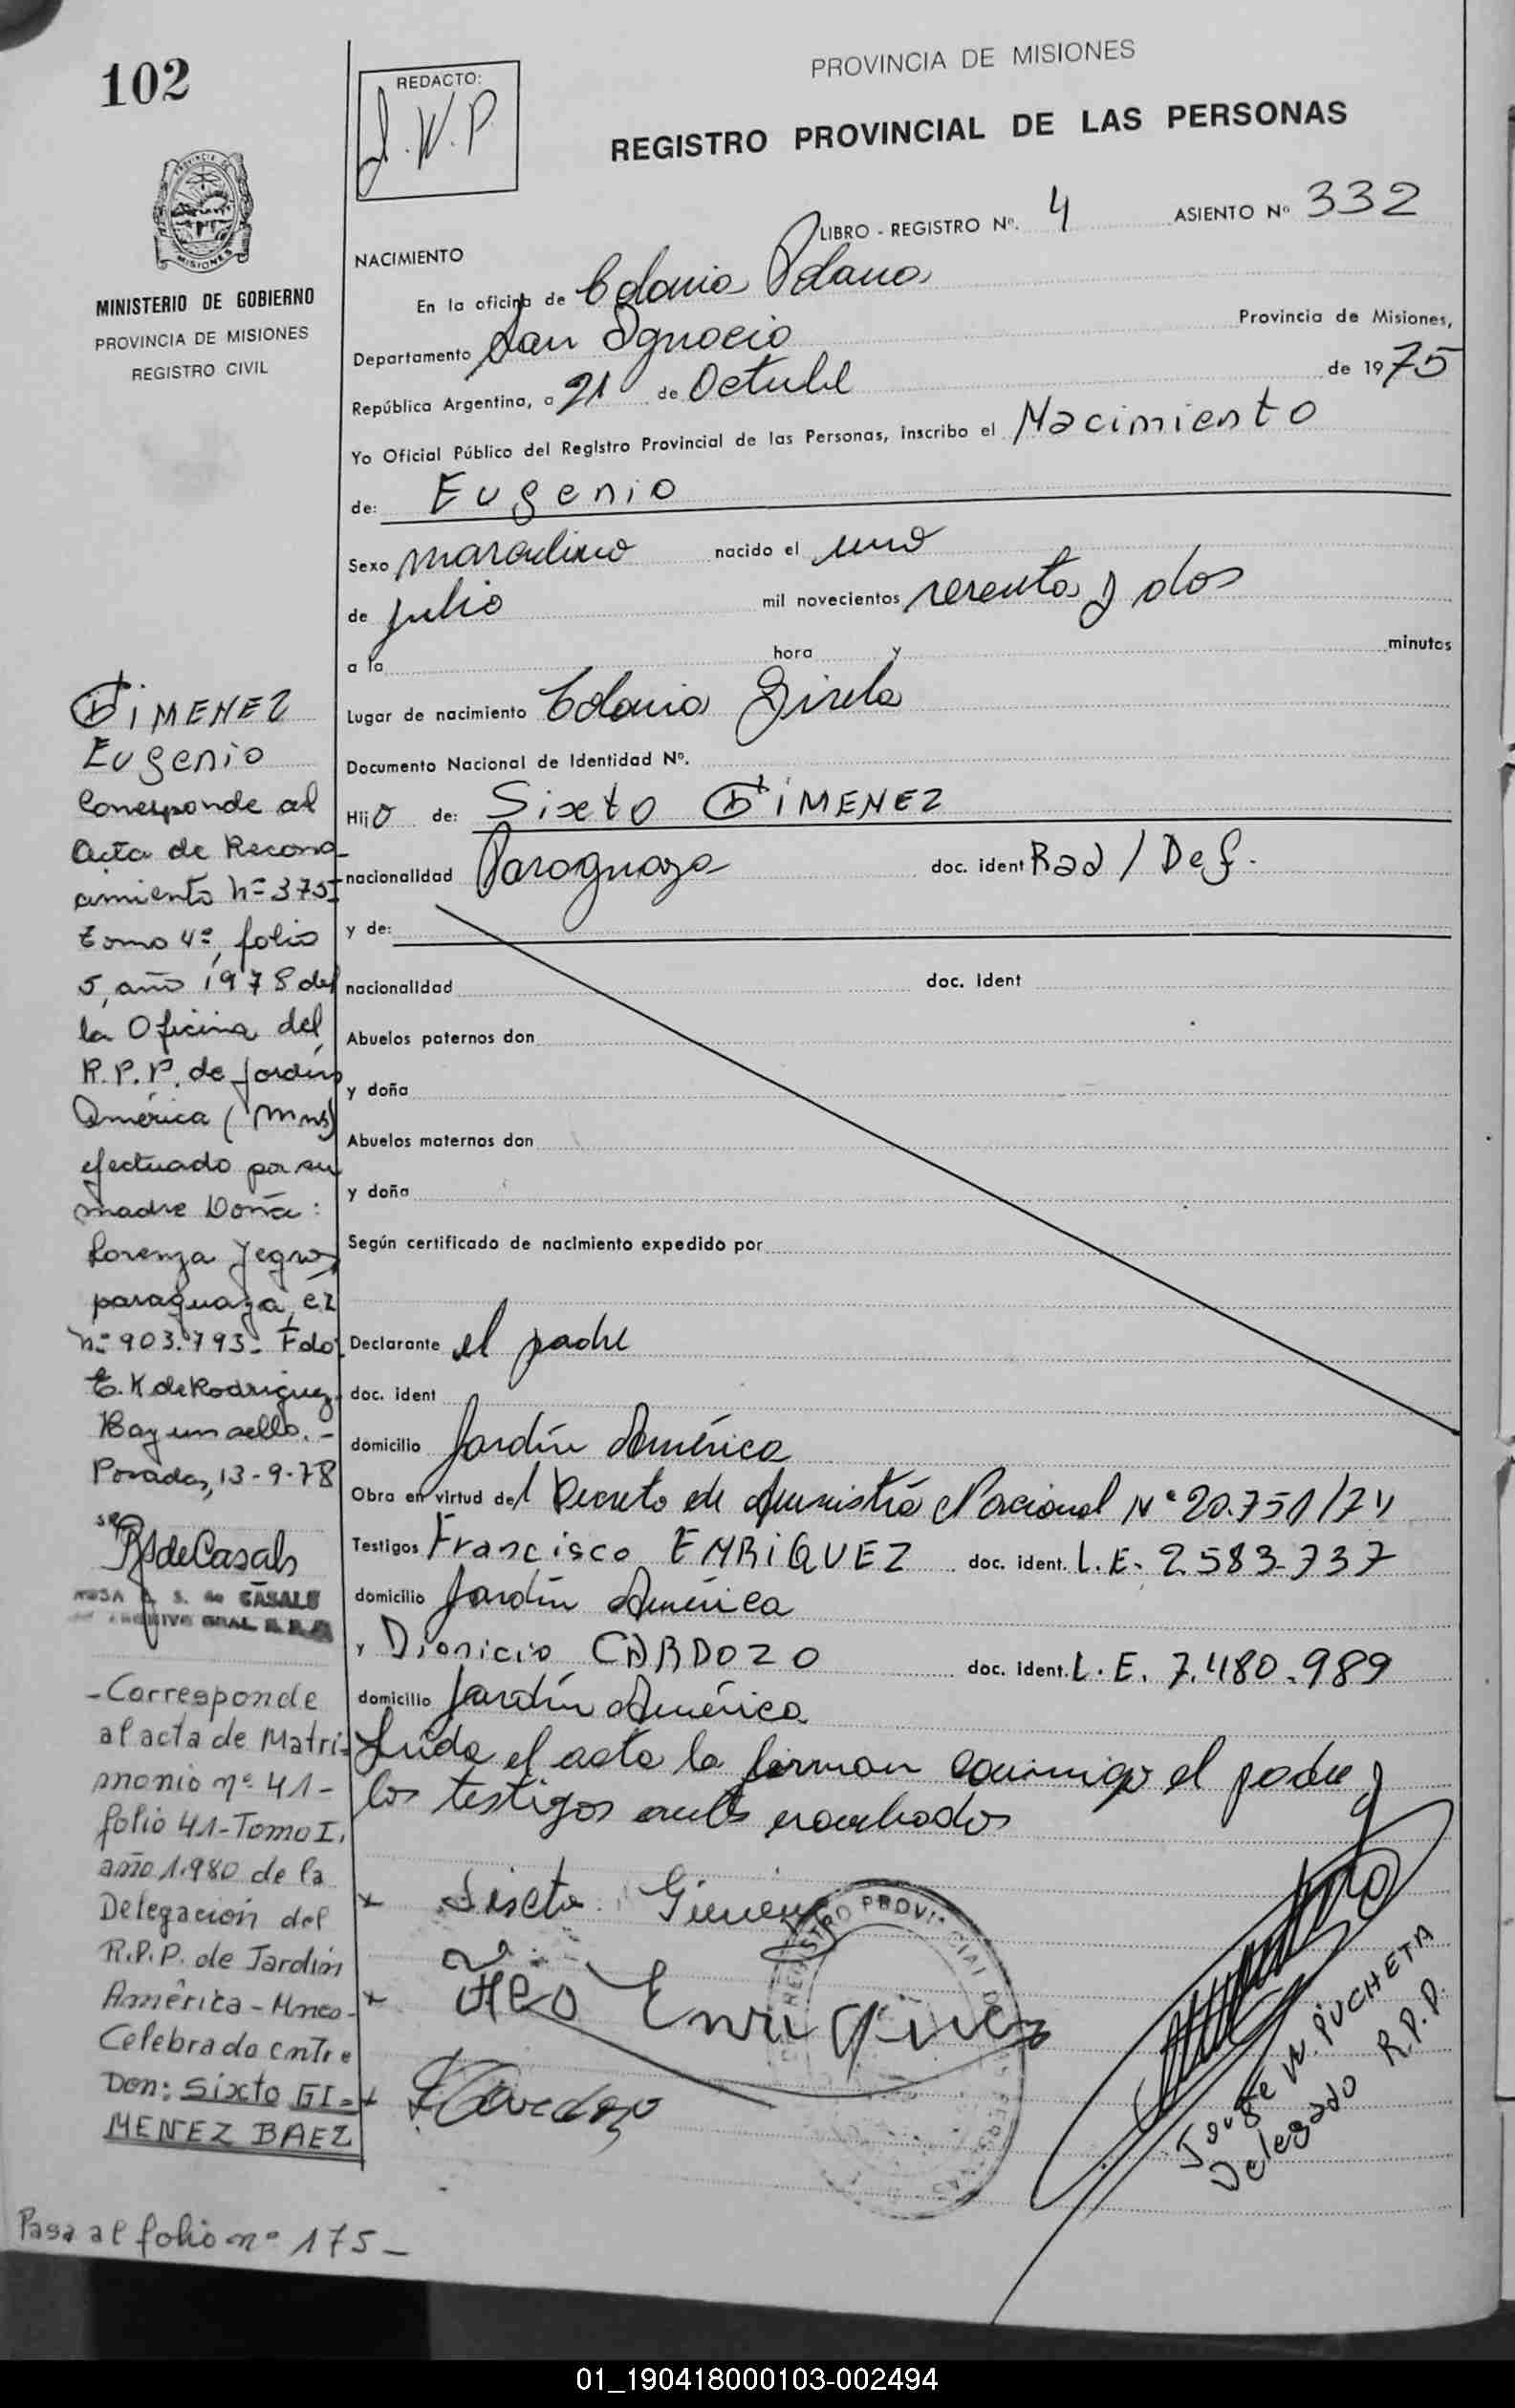 102
MINISTERIO DE GOBIERNO
PROVINCIA DE MISIONES
REGISTRO CIVIL
REDACTO:
J.W.P
PROVINCIA DE MISIONES
REGISTRO PROVINCIAL DE LAS PERSONAS
LIBRO - REGISTRO Nº. 4 ASIENTO Nº 332
NACIMIENTO
En la oficina de Colonia Polana
Departamento San Ignacio Provincia de Misiones,
República Argentina, a 21 de Octubre de 1975
Yo Oficial Público del Registro Provincial de las Personas, inscribo el Nacimiento
de: Eugenio
Sexo masculino nacido el uno
de julio mil novecientos sesenta y dos
a la hora y minutos
Lugar de nacimiento Colonia Gisela
Documento Nacional de Identidad Nº.
Hijo de: Sixto GIMENEZ
nacionalidad Paraguaya doc. ident Rad / Def.
y de:
nacionalidad doc. ident
Abuelos paternos don
y doña
Abuelos maternos don
y doña
Según certificado de nacimiento expedido por
Declarante el padre
doc. ident
domicilio Jardín América
Obra en virtud del Decreto de Amnistía Nacional Nº 20.751/74
Testigos Francisco ENRIQUEZ doc. ident. L.E. 2.583.737
domicilio Jardín América
y Dionicio CARDOZO doc. ident. L.E. 7.480.989
domicilio Jardín América
Leída el acta la firman conmigo el padre y
los testigos antes nombrados
x Sixto Gimenez
x Fco Enriquez
x Cardozo
REGISTRO PROVINCIAL DE LAS PERSONAS
Jorge W. PUCHETA
Delegado R.P.P.
GIMENEZ
Eugenio
Corresponde al
Acta de Recono-
cimiento Nº 375-
tomo 4º, folio
5, año 1978 de
la Oficina del
R.P.P. de Jardín
América (Mnes)
efectuado por su
madre Doña:
Lorenza Yegros,
paraguaya, C.I.
Nº 903.793- Fdo:
E. K de Rodriguez.
Hay un sello.-
Posadas, 13-9-78
RSdeCasals
ROSA S. de CASALS
ARCHIVO GRAL. R.P.P.
-Corresponde
al acta de Matri-
monio nº 41-
folio 41-Tomo I,
año 1.980 de la
Delegación del
R.P.P. de Jardín
América-Mnes-
Celebrado entre
Don: Sixto GI=
MENEZ BAEZ
Pasa al folio nº 175-
01_190418000103-002494